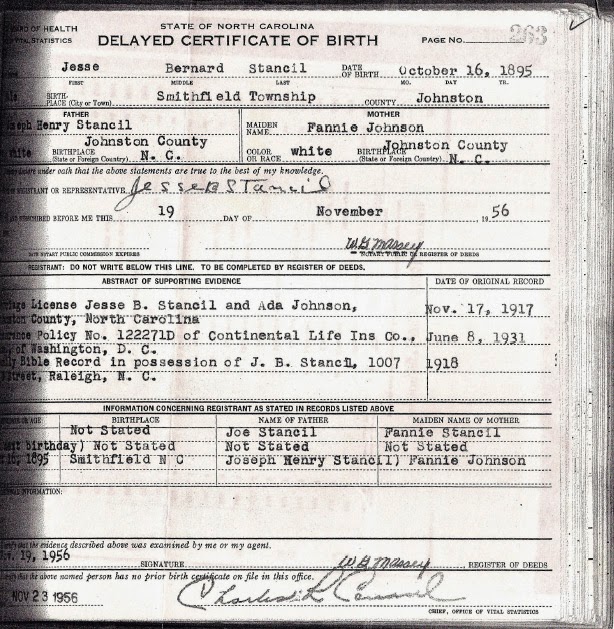 OF HEALTH
STATE OF NORTH CAROLINA
STATISTICS
DELAYED CERTIFICATE OF BIRTH
PAGE No. 263
Jesse Bernard Stancil DATE OF BIRTH October 16, 1895
FIRST MIDDLE LAST MO. DAY YR.
BIRTH-PLACE (City or Town) Smithfield Township COUNTY Johnston
FATHER MOTHER
Henry Stancil MAIDEN NAME Fannie Johnson
BIRTHPLACE (State or Foreign Country) Johnston County N. C. COLOR OR RACE white BIRTHPLACE (State or Foreign Country) Johnston County N. C.
under oath that the above statements are true to the best of my knowledge.
OR REPRESENTATIVE Jesse B Stancil
BEFORE ME THIS 19 DAY OF November 1956
W G Massey
NOTARY PUBLIC COMMISSION EXPIRES NOTARY PUBLIC OR REGISTER OF DEEDS
REGISTRANT: DO NOT WRITE BELOW THIS LINE. TO BE COMPLETED BY REGISTER OF DEEDS.
ABSTRACT OF SUPPORTING EVIDENCE DATE OF ORIGINAL RECORD
License Jesse B. Stancil and Ada Johnson, Nov. 17, 1917
County, North Carolina
Policy No. 122271D of Continental Life Ins Co., June 8, 1931
of Washington, D. C.
Bible Record in possession of J. B. Stancil, 1007 1918
Raleigh, N. C.
INFORMATION CONCERNING REGISTRANT AS STATED IN RECORDS LISTED ABOVE
OR AGE BIRTHPLACE NAME OF FATHER MAIDEN NAME OF MOTHER
Not Stated Joe Stancil Fannie Stancil
birthday) Not Stated Not Stated Not Stated
16, 1895 Smithfield N C Joseph Henry Stancil) Fannie Johnson
INFORMATION:
the evidence described above was examined by me or my agent.
19, 1956 SIGNATURE W G Massey REGISTER OF DEEDS
that the above named person has no prior birth certificate on file in this office.
NOV 23 1956
CHIEF, OFFICE OF VITAL STATISTICS